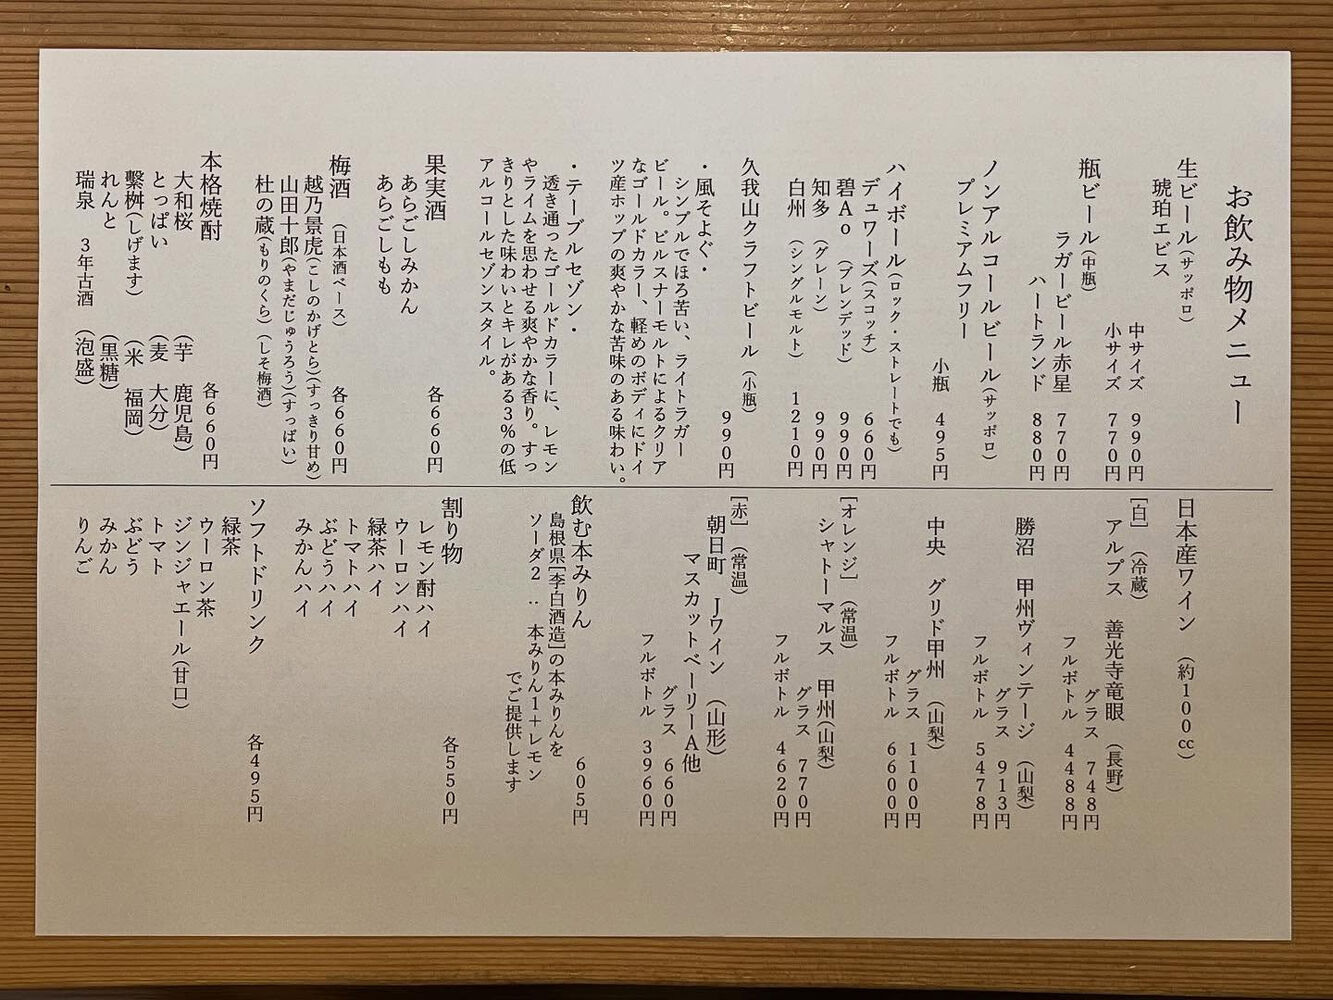 お飲み物メニュー
生ビール(サッポロ)
琥珀ヱビス
中サイズ 990円
小サイズ 770円
瓶ビール(中瓶)
ラガービール赤星 770円
ハートランド 880円
ノンアルコールビール(サッポロ)
プレミアムフリー
小瓶 495円
ハイボール(ロック・ストレートでも)
デュワーズ(スコッチ) 660円
碧Ao (ブレンデッド) 990円
知多 (グレーン) 990円
白州 (シングルモルト) 1210円
久我山クラフトビール (小瓶)
990円
・風そよぐ・
シンプルでほろ苦い、ライトラガー
ビール。ピルスナーモルトによるクリア
なゴールドカラー、軽めのボディにドイ
ツ産ホップの爽やかな苦味のある味わい。
・テーブルセゾン・
透き通ったゴールドカラーに、レモン
やライムを思わせる爽やかな香り。すっ
きりとした味わいとキレがある3%の低
アルコールセゾンスタイル。
果実酒 各660円
あらごしみかん
あらごしもも
梅酒 (日本酒ベース) 各660円
越乃景虎(こしのかげとら)(すっきり甘め)
山田十郎(やまだじゅうろう)(すっぱい)
杜の蔵(もりのくら)(しそ梅酒)
本格焼酎 各660円
大和桜 (芋 鹿児島)
とっぱい (麦 大分)
繫桝(しげます) (米 福岡)
れんと (黒糖)
瑞泉 3年古酒 (泡盛)
日本産ワイン (約100cc)
[白] (冷蔵)
アルプス 善光寺竜眼 (長野)
グラス 748円
フルボトル 4488円
勝沼 甲州ヴィンテージ (山梨)
グラス 913円
フルボトル 5478円
中央 グリド甲州 (山梨)
グラス 1100円
フルボトル 6600円
[オレンジ] (常温)
シャトーマルス 甲州(山梨)
グラス 770円
フルボトル 4620円
[赤] (常温)
朝日町 Jワイン (山形)
マスカットベーリーA他
グラス 660円
フルボトル 3960円
飲む本みりん 605円
島根県[李白酒造]の本みりんを
ソーダ2:本みりん1+レモン
でご提供します
割り物 各550円
レモン酎ハイ
ウーロンハイ
緑茶ハイ
トマトハイ
ぶどうハイ
みかんハイ
ソフトドリンク 各495円
緑茶
ウーロン茶
ジンジャエール(甘口)
トマト
ぶどう
みかん
りんご